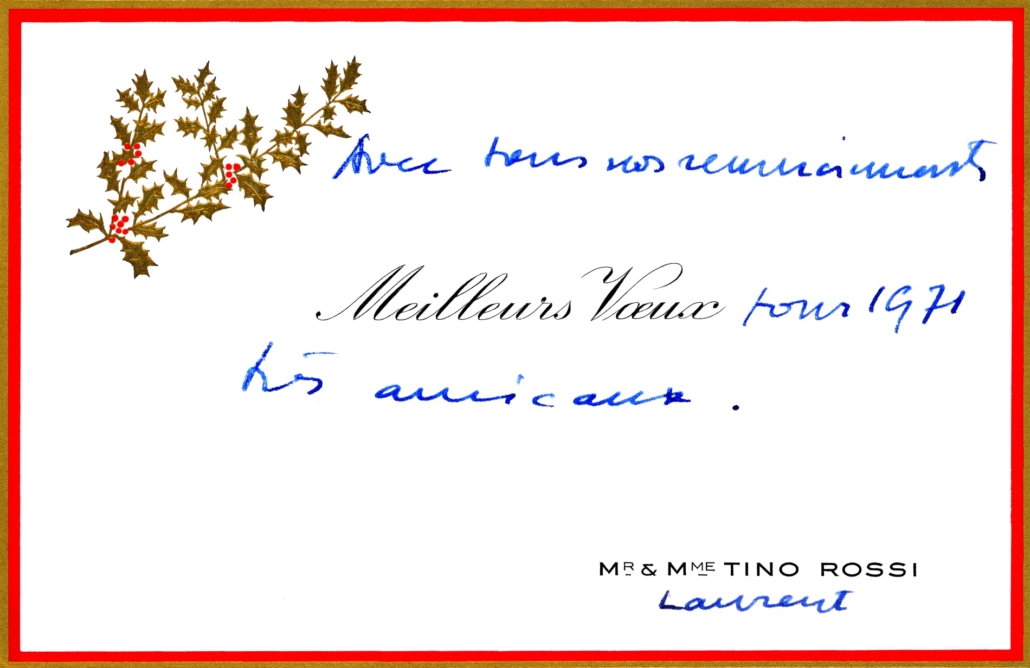 Avec tous nos remerciements
Meilleurs Vœux pour 1971
très amicaux.
MR & MME TINO ROSSI
Laurent